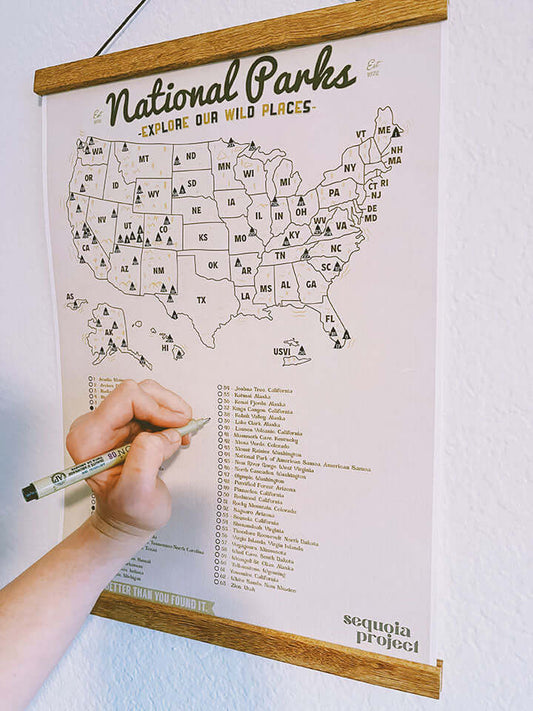 National Parks
Est
1872
-EXPLORE OUR WILD PLACES-
WA
MT
ND
MN
VT
ME
OR
ID
WY
SD
WI
MI
NY
NH
MA
NE
IA
PA
CT RI
NJ
NV
UT
CO
IL
IN
OH
DE
MD
CA
KS
MO
KY
WV
VA
AZ
NM
OK
AR
TN
NC
SC
TX
LA
MS
AL
GA
AS
AK
HI
USVI
FL
34 Joshua Tree, California
35 Katmai, Alaska
36 Kenai Fjords, Alaska
37 Kings Canyon, California
38 Kobuk Valley, Alaska
39 Lake Clark, Alaska
40 Lassen Volcanic, California
41 Mammoth Cave, Kentucky
42 Mesa Verde, Colorado
43 Mount Rainier, Washington
44 National Park of American Samoa, American Samoa
45 New River Gorge, West Virginia
46 North Cascades, Washington
47 Olympic, Washington
48 Petrified Forest, Arizona
49 Pinnacles, California
50 Redwood, California
51 Rocky Mountain, Colorado
52 Saguaro, Arizona
53 Sequoia, California
54 Shenandoah, Virginia
55 Theodore Roosevelt, North Dakota
56 Virgin Islands, Virgin Islands
57 Voyageurs, Minnesota
58 Wind Cave, South Dakota
59 Wrangell-St. Elias, Alaska
60 Yellowstone, Wyoming
61 Yosemite, California
62 White Sands, New Mexico
63 Zion, Utah
ETTER THAN YOU FOUND IT.
sequoia
project